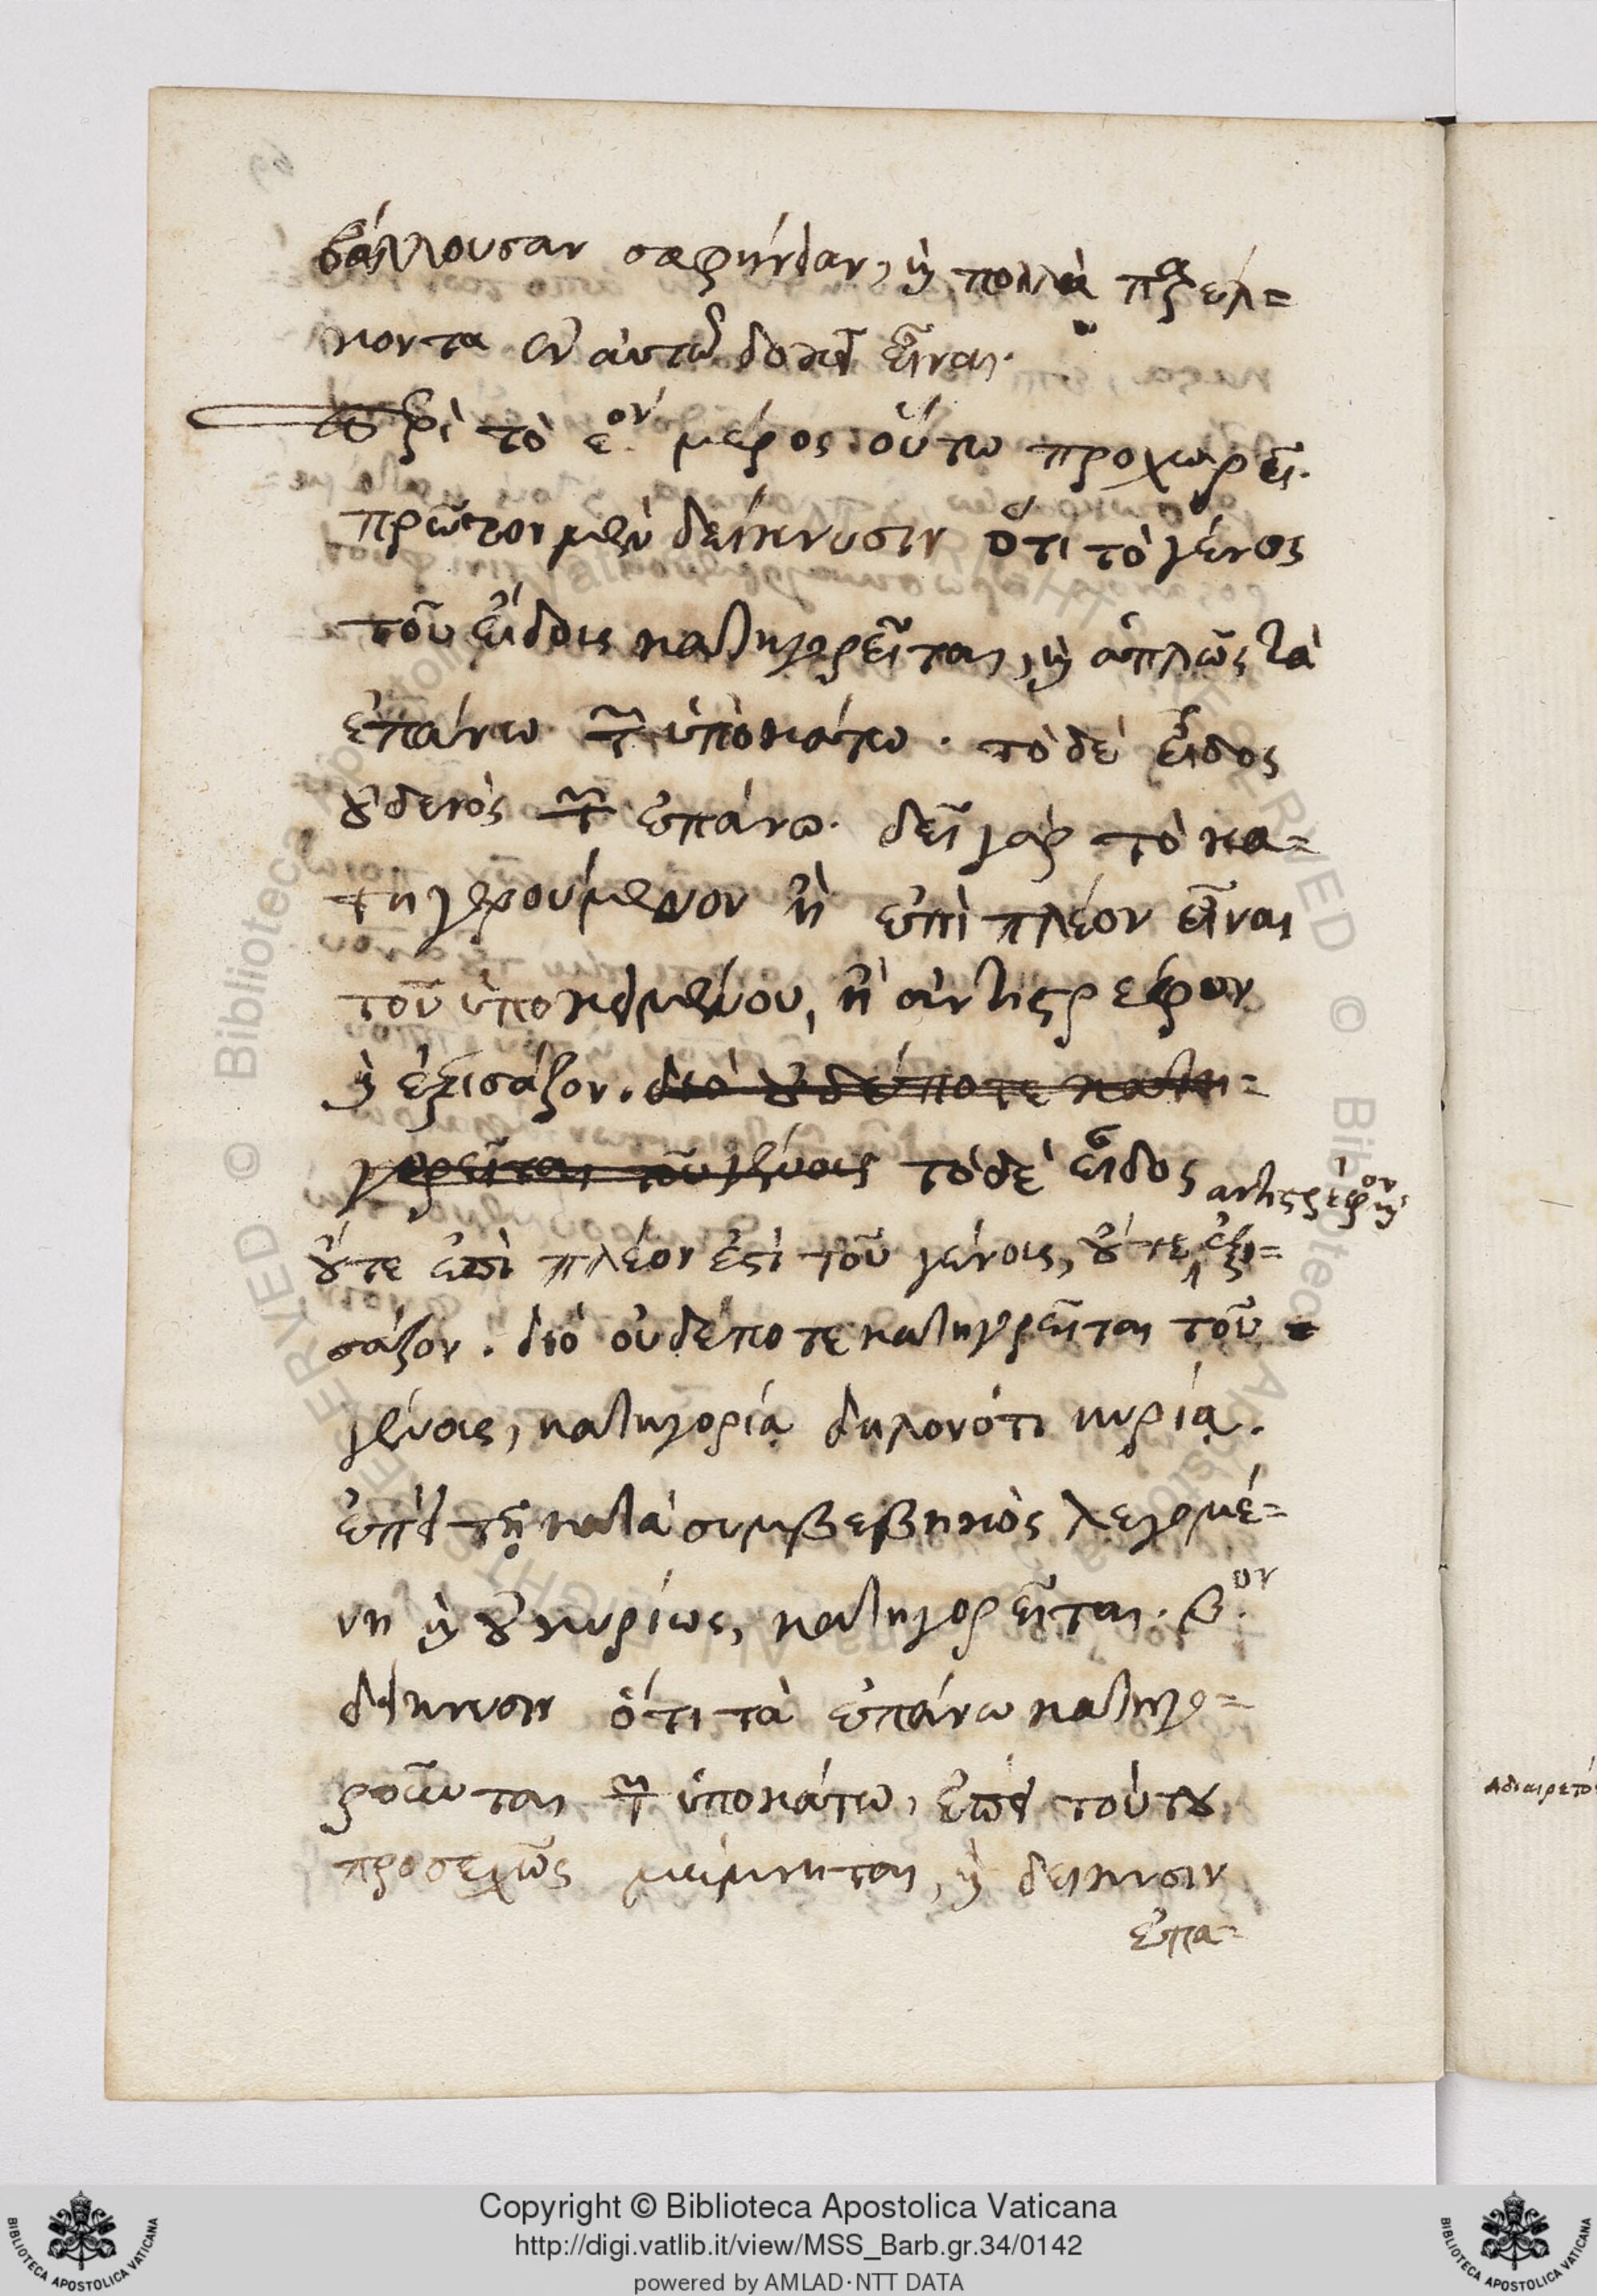 βάλλουσαν σαφήνειαν, καὶ πολλὰ παρέλ=
κοντα ἐν αὐτῷ δοκεῖ εἶναι.
τὸ ε.ον μέρος οὕτω προχωρεῖ.
πρῶτον μὲν δείκνυσιν ὅτι τὸ γένος
τοῦ εἴδους κατηγορεῖται, καὶ ἁπλῶς τὰ
ἐπάνω τῶν ὑποκάτω. τὸ δὲ εἶδος
οὐδενὸς τῶν ἐπάνω. δεῖ γὰρ τὸ κα=
τηγορούμενον ἢ ἐπὶ πλέον εἶναι
τοῦ ὑποκειμένου, ἢ ἀντιστρέφον
καὶ ἐξισάζον. διὸ οὐδέποτε κατη=
γορεῖται τοῦ γένους τὸ δὲ εἶδος
ἀντιστρέφον καὶ
οὔτε ἐπὶ πλέον ἐστὶ τοῦ γένους, οὔτε ἐξι=
σάζον. διὸ οὐδέποτε κατηγορεῖται τοῦ
γένους, κατηγορίᾳ δηλονότι κυρίᾳ.
ἐπεὶ τῇ κατὰ συμβεβηκὸς λεγομέ=
νῃ καὶ οὐ κυρίως, κατηγορεῖται. β.ον
δείκνυσιν ὅτι τὰ ἐπάνω κατηγο=
ροῦνται τῶν ὑποκάτω, ἐπεὶ τούτου
προσεχῶς μέμνηται, καὶ δείκνυσιν
ἐπα=
Copyright © Biblioteca Apostolica Vaticana
http://digi.vatlib.it/view/MSS_Barb.gr.34/0142
powered by AMLAD·NTT DATA